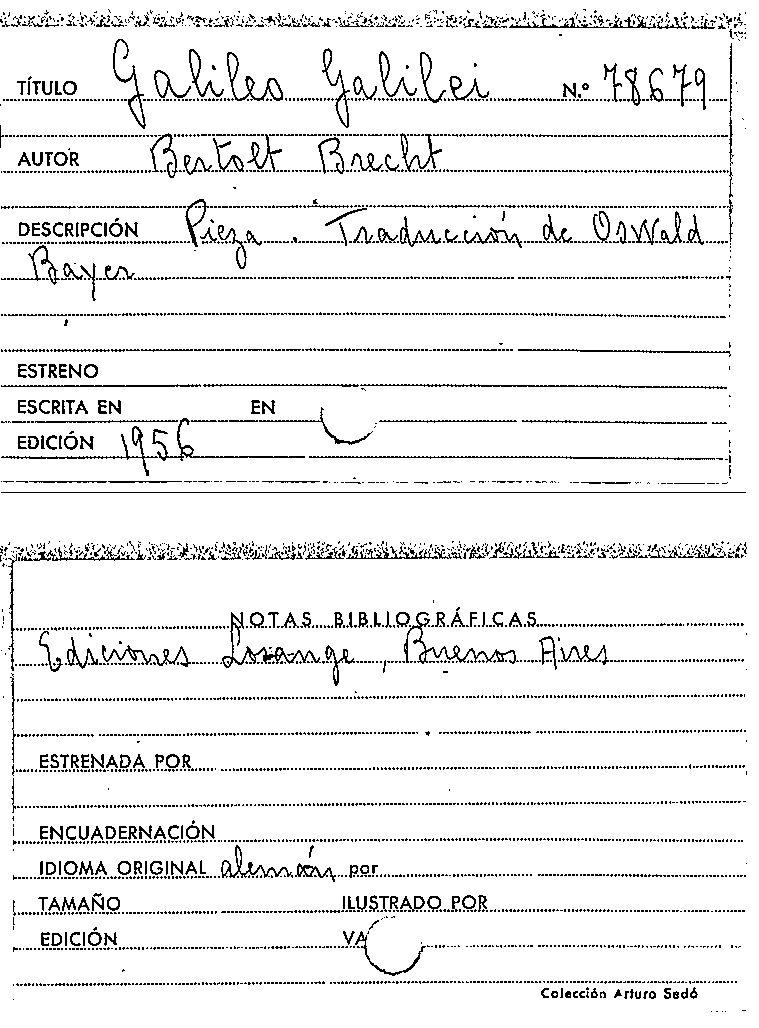 TÍTULO Galileo Galilei N.º 78679
AUTOR Bertolt Brecht
DESCRIPCIÓN Pieza. Traducción de Oswald
Bayer
ESTRENO
ESCRITA EN EN
EDICIÓN 1956
NOTAS BIBLIOGRÁFICAS
Ediciones Losange, Buenos Aires
ESTRENADA POR
ENCUADERNACIÓN
IDIOMA ORIGINAL alemán por
TAMAÑO ILUSTRADO POR
EDICIÓN VA
Colección Arturo Sedó